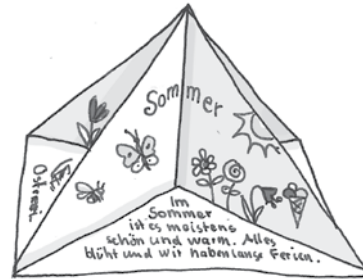 Sommer
Im
Sommer
ist es meistens
schön und warm. Alles
blüht und wir haben lange Ferien.